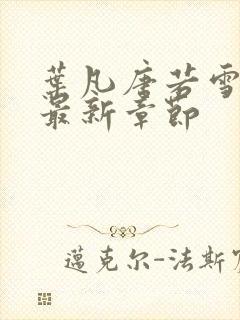 葉凡唐若雪
最新章節
邁克尔-法斯宾